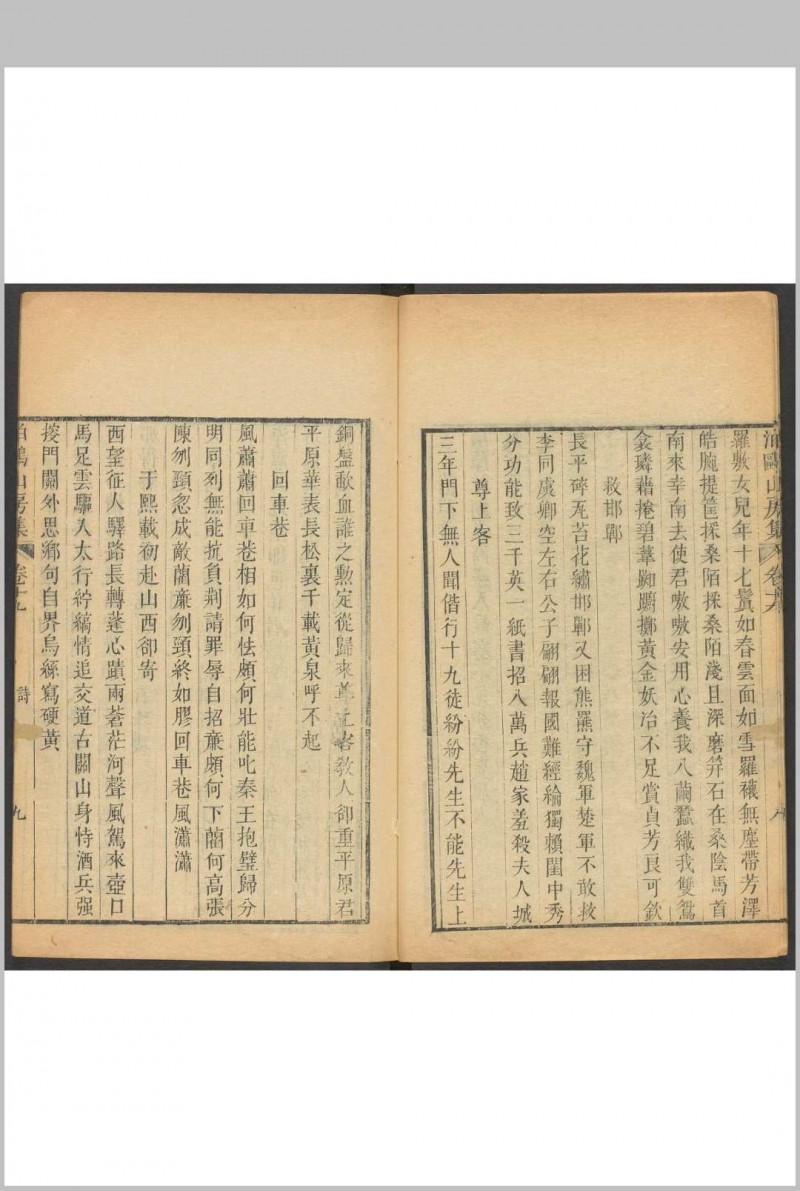 山房集 卷十九
羅敷女兒年十七鬢如春雲面如雪羅襪無塵帶芳澤
皓腕提筐採桑陌採桑陌淺且深磨笄石在桑陰馬首
南來幸南去使君嗷嗷安用心養我八繭蠶織我雙鴛
衾璘藉捲碧葦踟躕擲黃金妖冶不足賞貞芳良可欽
救邯鄲
長平碎瓦苔花繡邯鄲又困熊羆守魏軍楚軍不敢救
李同虞卿空左右公子翩翩報國難經綸獨賴閨中秀
分功能致三千英一紙書招八萬兵趙家羞殺夫人城
尊上客
三年門下無人聞偕行十九徒紛紛先生不能先生上
銅盤歃血誰之勲定從歸來尊上客教人卻重平原君
平原華表長松裏千載黃泉呼不起
回車巷
風蕭蕭回車巷相如何怯頗何壯能叱秦王抱璧歸分
明同列無能抗負荆請罪辱自招廉頗何下藺何高張
陳刎頸忽成敵藺廉刎頸終如膠回車巷風瀟瀟
于熙載初赴山西卻寄
西望征人驛路長轉蓬心蹟兩蒼茫河聲風駕來壺口
馬足雲驅入太行紵縞情追交道古關山身恃酒兵强
接門關外思鄉句自界烏絲寫硬黃
山房集 卷十九 詩 九